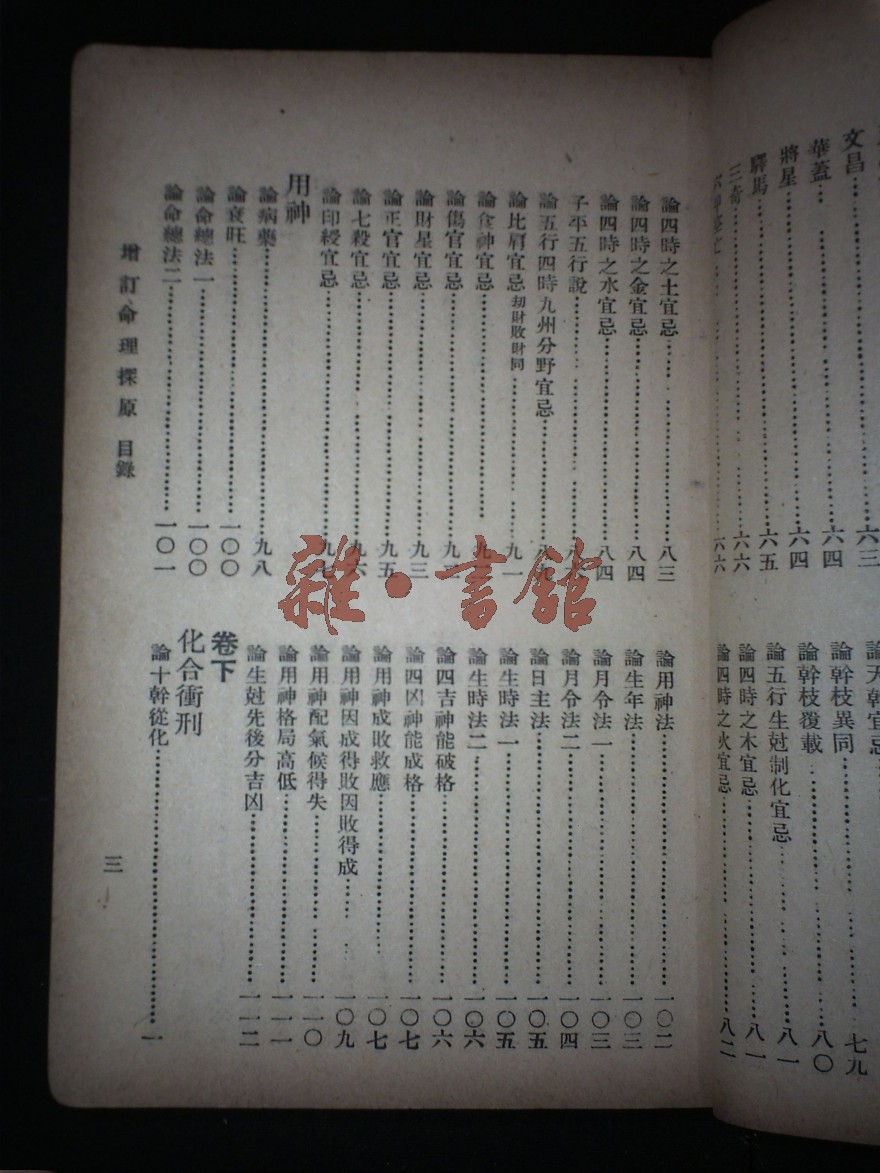 文昌
六三
華蓋
六四
將星
六四
驛馬
六五
三奇
六六
六六
論天幹宜忌
論幹枝異同
七九
論幹枝覆載
八〇
論五行生尅制化宜忌
八一
論四時之木宜忌
八一
論四時之火宜忌
八二
論四時之土宜忌
八三
論四時之金宜忌
八四
論四時之水宜忌
八四
子平五行說
論五行四時九州分野宜忌
論比肩宜忌 刼財敗財同
九一
論食神宜忌
論傷官宜忌
論財星宜忌
九三
論正官宜忌
九五
論七殺宜忌
九六
論印綬宜忌
九七
用神
論病藥
九八
論衰旺
一〇〇
論命總法一
一〇〇
論命總法二
一〇一
論用神法
一〇二
論生年法
一〇三
論月令法一
一〇三
論月令法二
一〇四
論日主法
一〇五
論生時法一
一〇五
論生時法二
一〇六
論四吉神能破格
一〇六
論四凶神能成格
一〇七
論用神成敗救應
一〇七
論用神因成得敗因敗得成
一〇九
論用神配氣候得失
一一〇
論用神格局高低
一一一
論生尅先後分吉凶
一一二
卷下
化合衝刑
論十幹從化
一
增訂命理探原 目錄
三
雜·書館